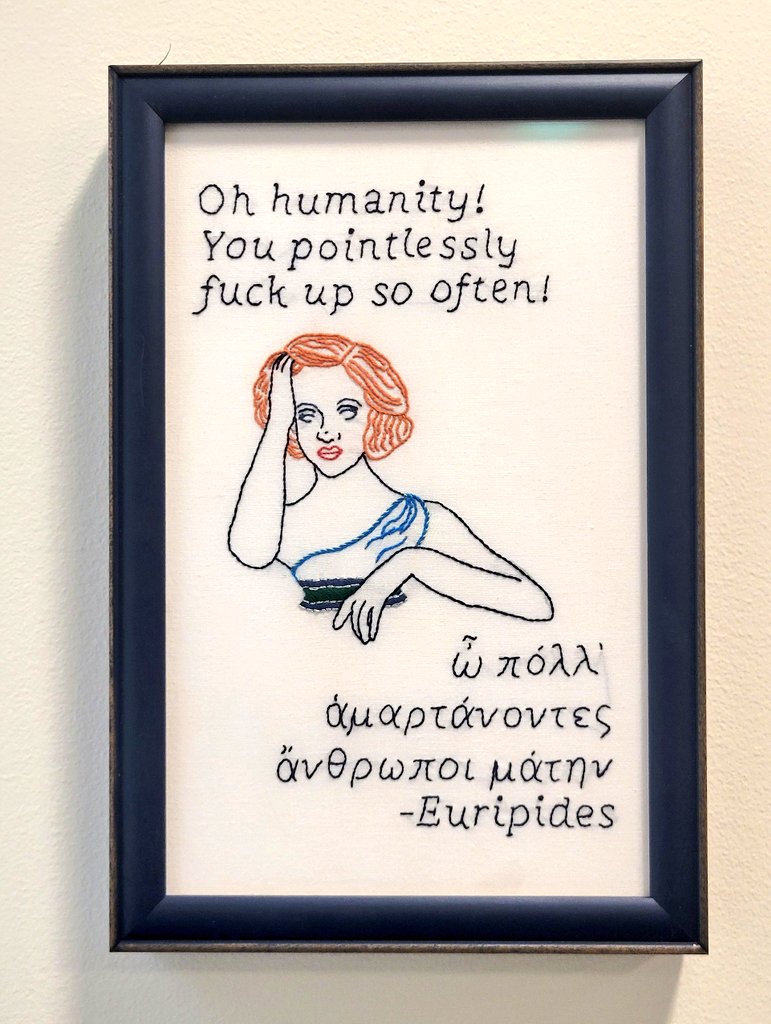 Oh humanity!
You pointlessly
fuck up so often!
ὦ πόλλ'
ἁμαρτάνοντες
ἄνθρωποι μάτην
-Euripides